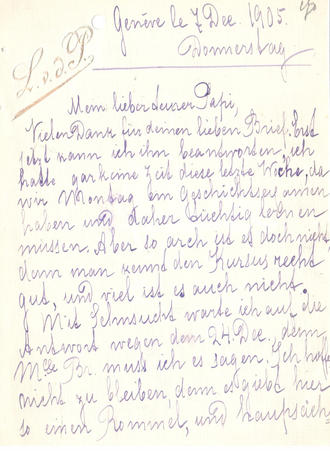 Genève le 7 Dec. 1905.
Donnerstag
L. v. d. P.
Mein lieber teurer Papi,
Vielen Dank für deinen lieben Brief. Erst
jetzt kann ich ihn beantworten, ich
hatte gar keine Zeit diese letzte Woche, da
wir Montag ein Geschichtsexamen
haben und daher tüchtig lernen
müssen. Aber so arch ist es doch nicht,
denn man kennt den Kursus recht
gut, und viel ist es auch nicht.
Mit Sehnsucht warte ich auf die
Antwort wegen dem 24. Dec., denn
Mlle Br. muss ich es sagen. Ich hoffe
nicht zu bleiben, denn es giebt hier
so einen Rommel, und hauptsäch-